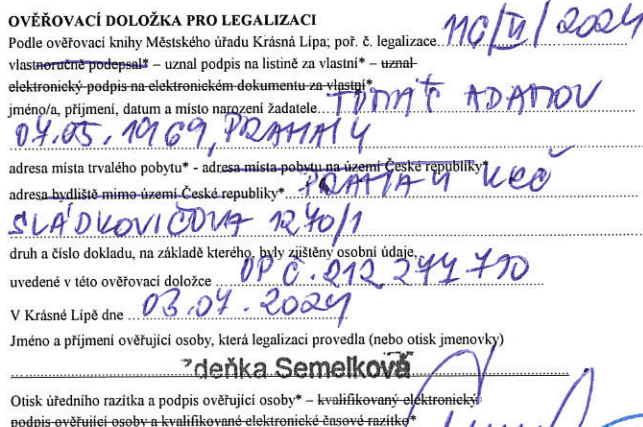 OVĚŘOVACÍ DOLOŽKA PRO LEGALIZACI
Podle ověřovací knihy Městského úřadu Krásná Lípa; poř. č. legalizace 110/II/2024
vlastnoručně podepsal* – uznal podpis na listině za vlastní* – uznal
elektronický podpis na elektronickém dokumentu za vlastní*
jméno/a, příjmení, datum a místo narození žadatele TOMÁŠ ADAMOV
07.05.1969, PRAHA 4
adresa místa trvalého pobytu* - adresa místa pobytu na území České republiky*
adresa bydliště mimo území České republiky* PRAHA 4 KRČ
SLÁDKOVIČOVA 1270/1
druh a číslo dokladu, na základě kterého, byly zjištěny osobní údaje,
uvedené v této ověřovací doložce OP Č. 212 271 790
V Krásné Lípě dne 03.07.2024
Jméno a příjmení ověřující osoby, která legalizaci provedla (nebo otisk jmenovky)
Zdeňka Semelková
Otisk úředního razítka a podpis ověřující osoby* – kvalifikovaný elektronický
podpis ověřující osoby a kvalifikované elektronické časové razítko*